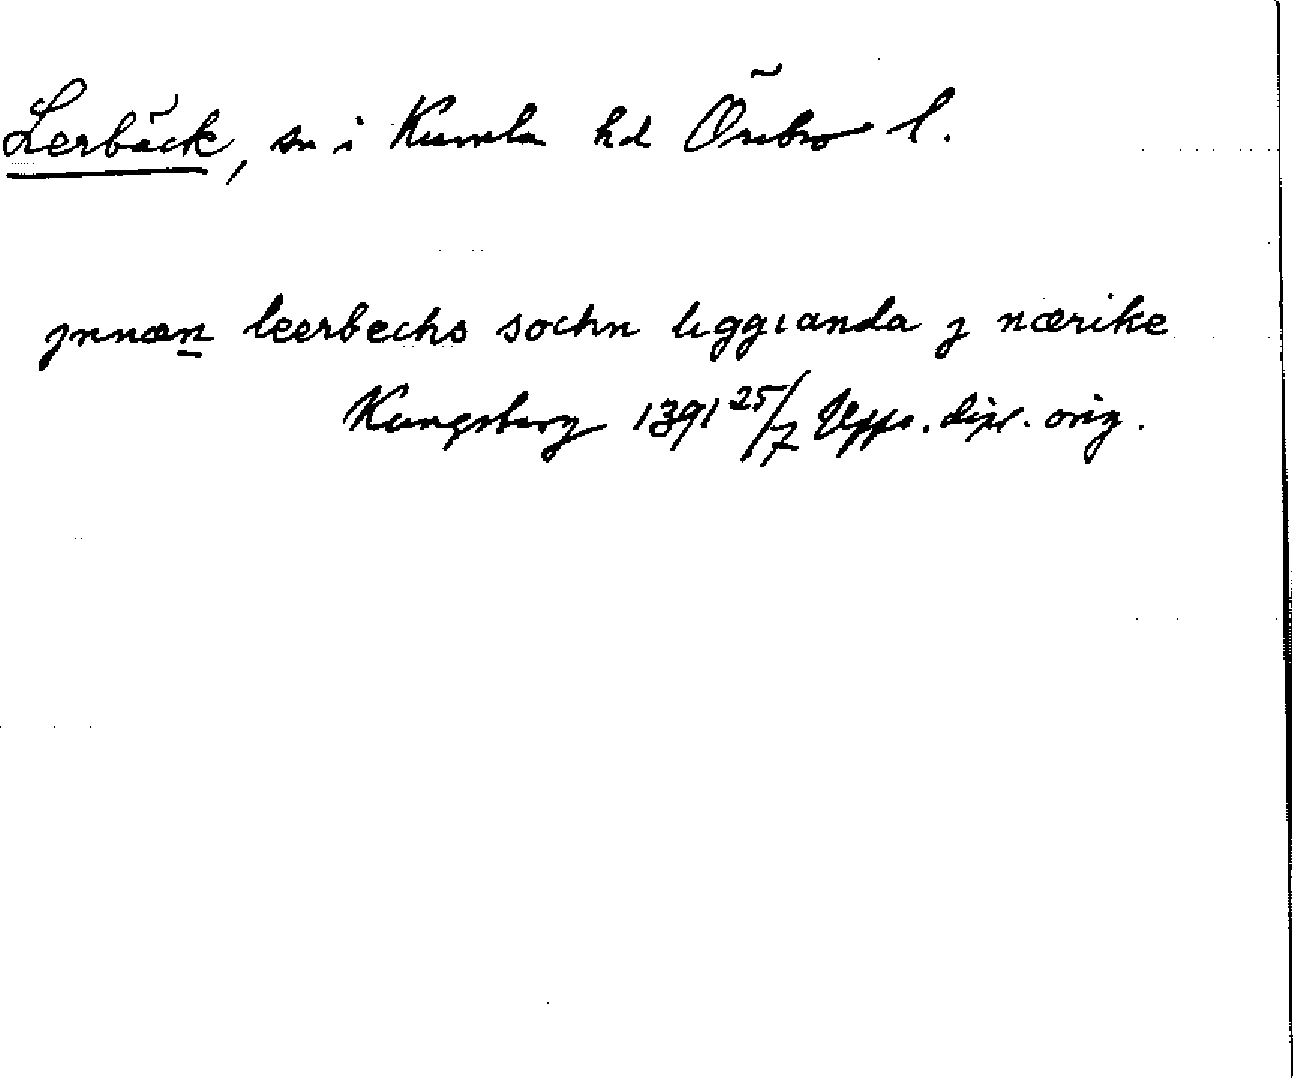 Lerbäck, sn i Kumla hd Örebro l.
jnnæn leerbechs sochn liggianda j nærike
Kungsberg 1391 25/7 Upps. dipl. orig.